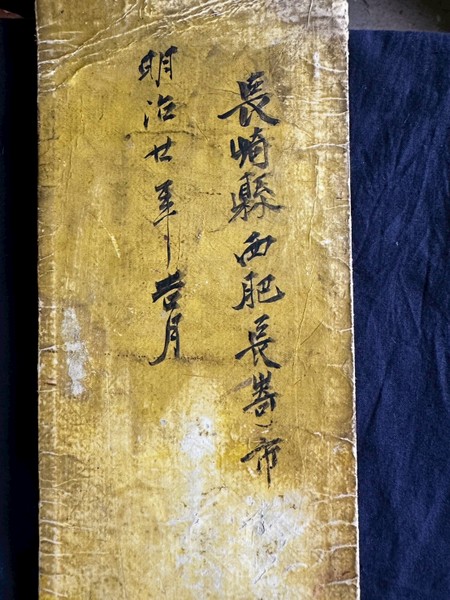 長崎縣西肥長嵜市
明治廿年吉月